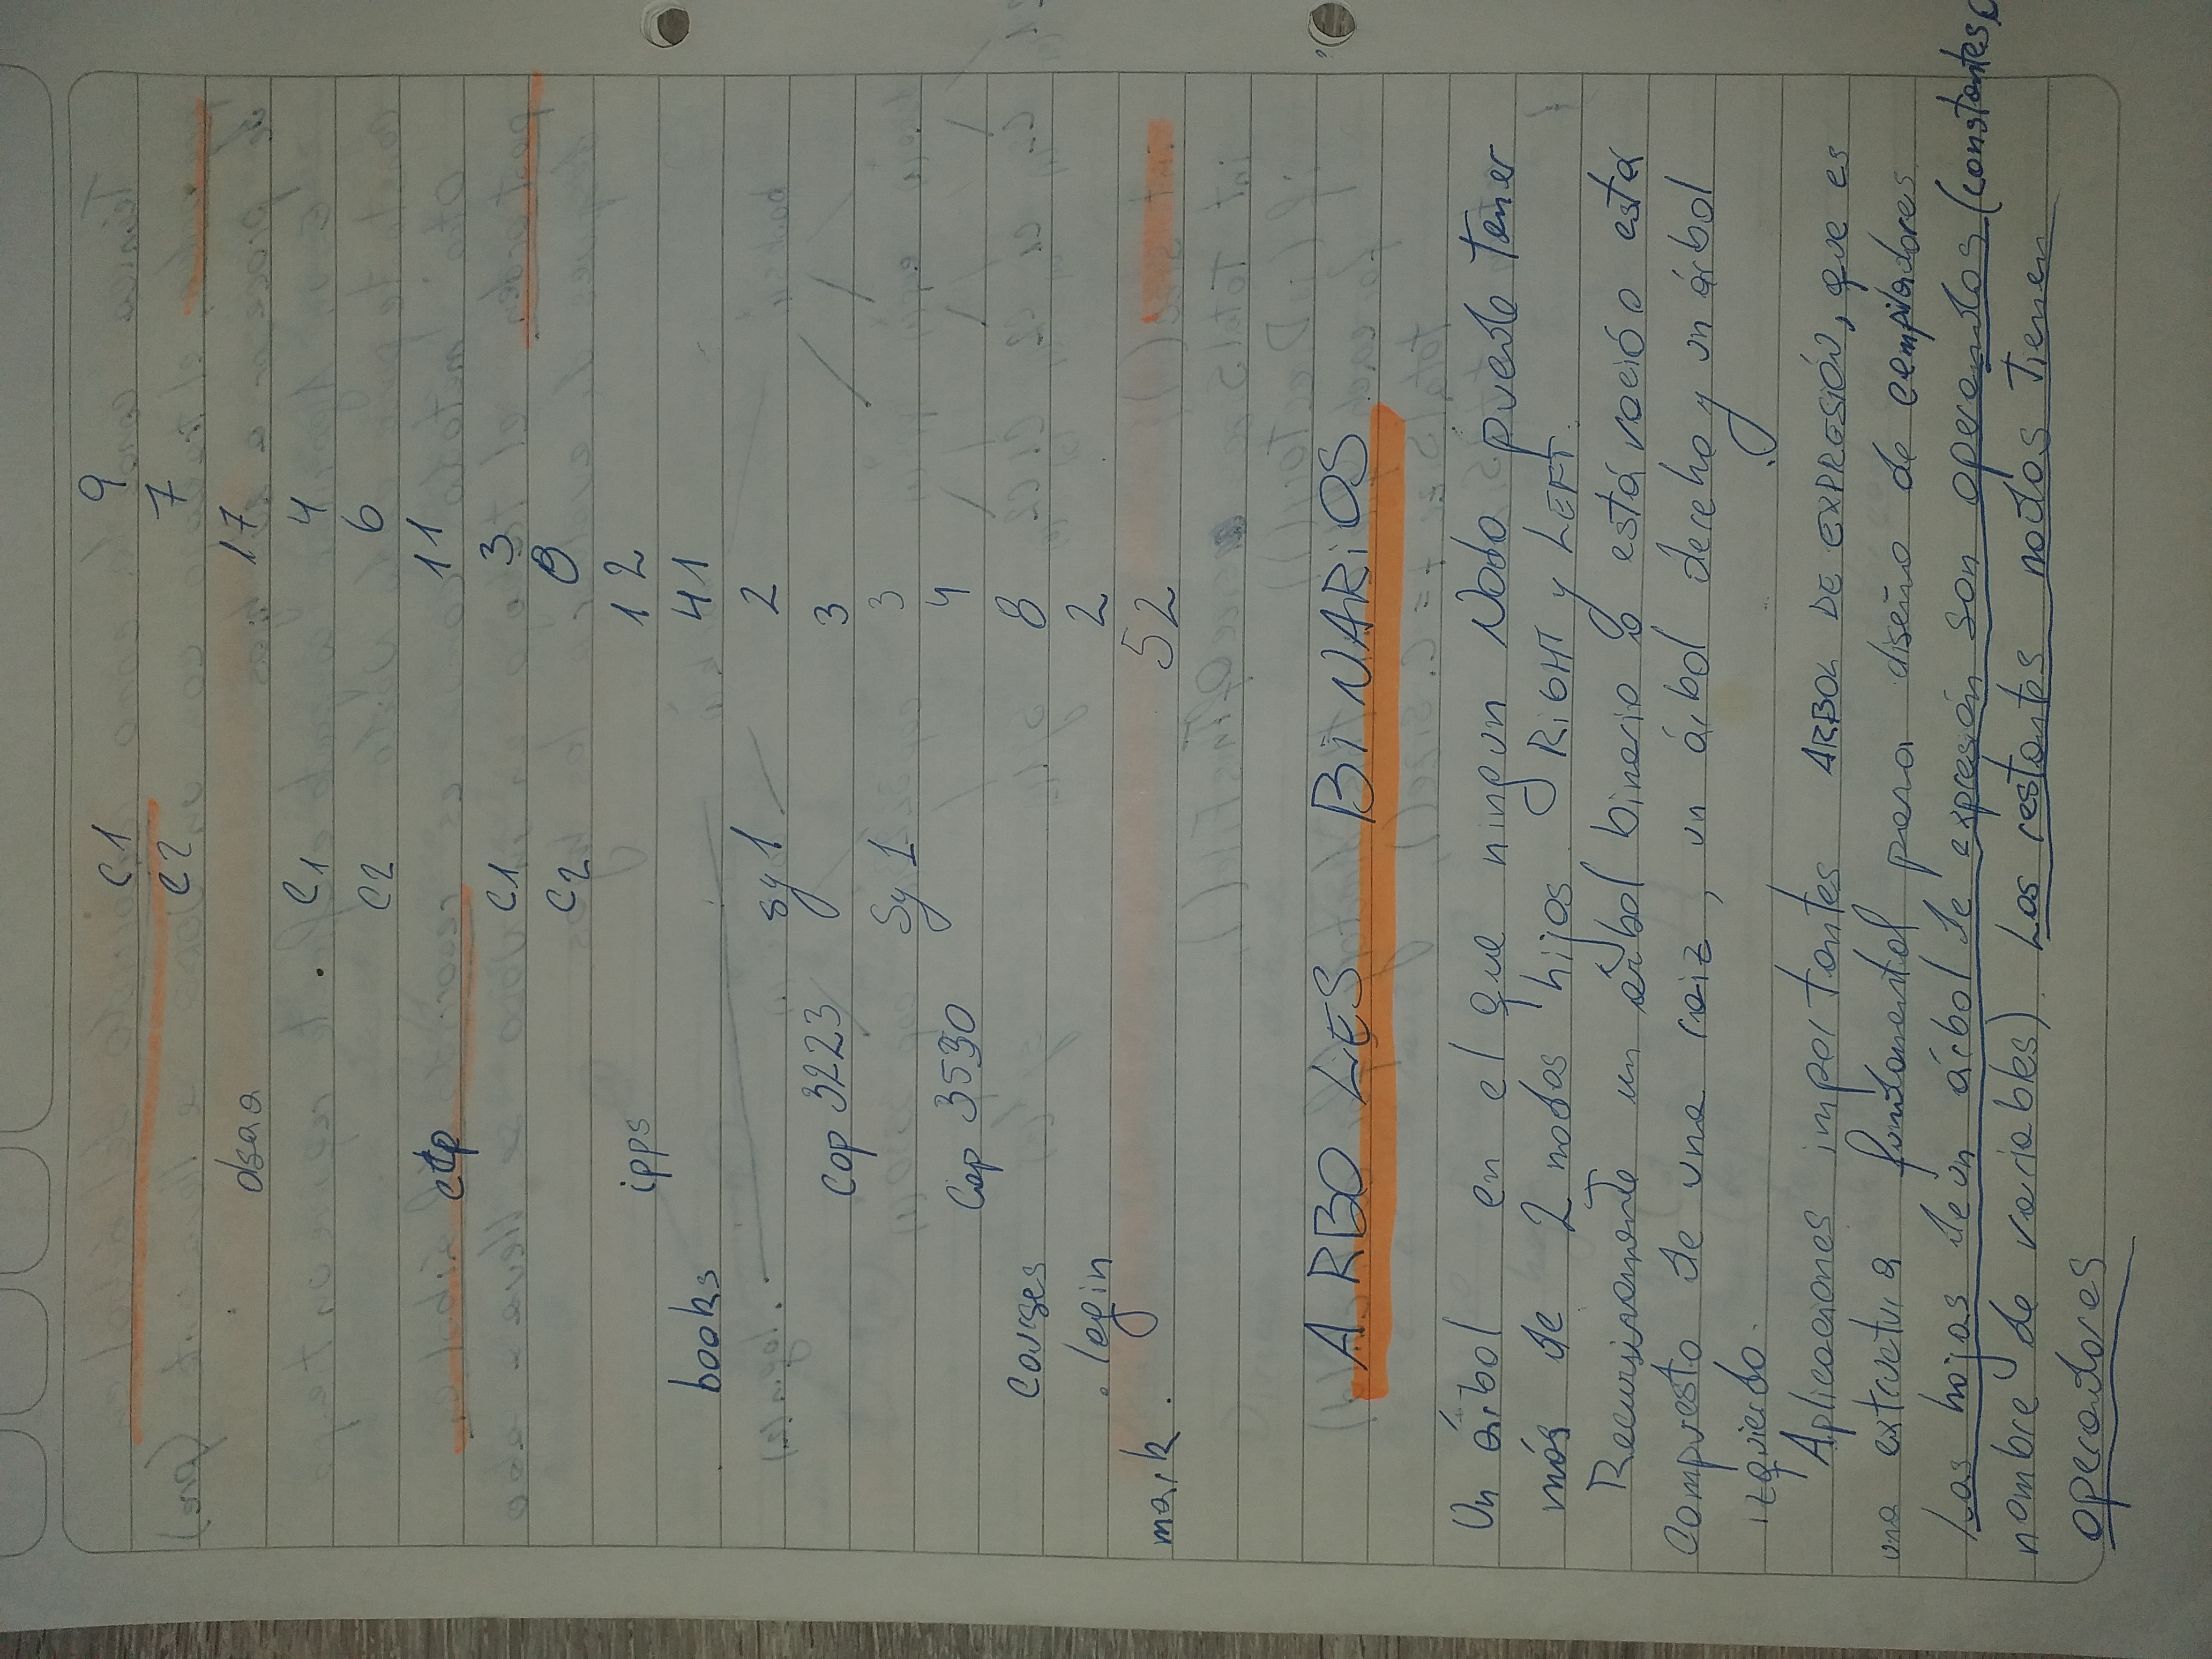 C1 9
C2 7
dsaa 17
C1 4
C2 6
ecp 11
C1 3
C2 8
ipps 12
books 41
sy1 2
Cop 3223 3
Sy1 3
Cop 3530 4
Courses 8
.login 2
mark. 52
ARBOLES BiNARiOS
Un árbol en el que ningun Nodo puede Tener
más de 2 nodos hijos RiGHT y LEFT.
Recursivamente un árbol binario o está vació o está
compuesto de una raiz, un árbol derecho y un árbol
izquierdo.
Aplicaciones importantes ARBOL DE EXPRESIÓN, que es
una extructura fundamental para diseño de compiladores.
Las hojas de un árbol de expresión son operandos (constantes o
nombre de variables). Los restantes nodos Tienen
operadores